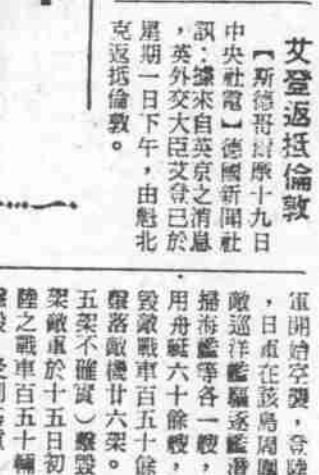 艾登返抵倫敦
【斯德哥爾摩十九日
中央社電】德國新聞社
訊:據來自英京之消息
,英外交大臣艾登已於
星期一日下午,由魁北
克返抵倫敦。
軍開始空襲,登陸
,日軍在該島周圍
敵巡洋艦驅逐艦潛
掃海艦等各一艘,
用舟艇六十餘艘,
毀敵戰車百五十餘
落敵機廿六架。
五架不確實)擊毀
架敵軍於十五日初
陸之戰車百五十輛